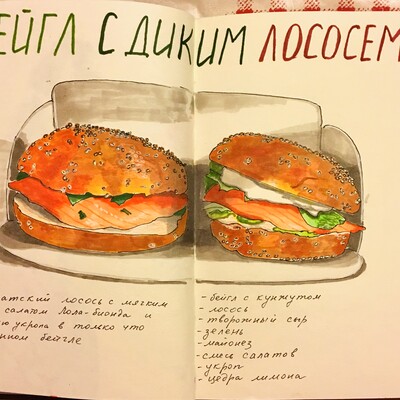 ЕЙГЛ С ДИКИМ ЛОСОСЕМ
атский лосось с мягким
салатом Лола-бионда и
ю укропа в только что
нном бейгле
- бейгл с кунжутом
- лосось
- творожный сыр
- зелень
- майонез
- смесь салатов
- укроп
- цедра лимона